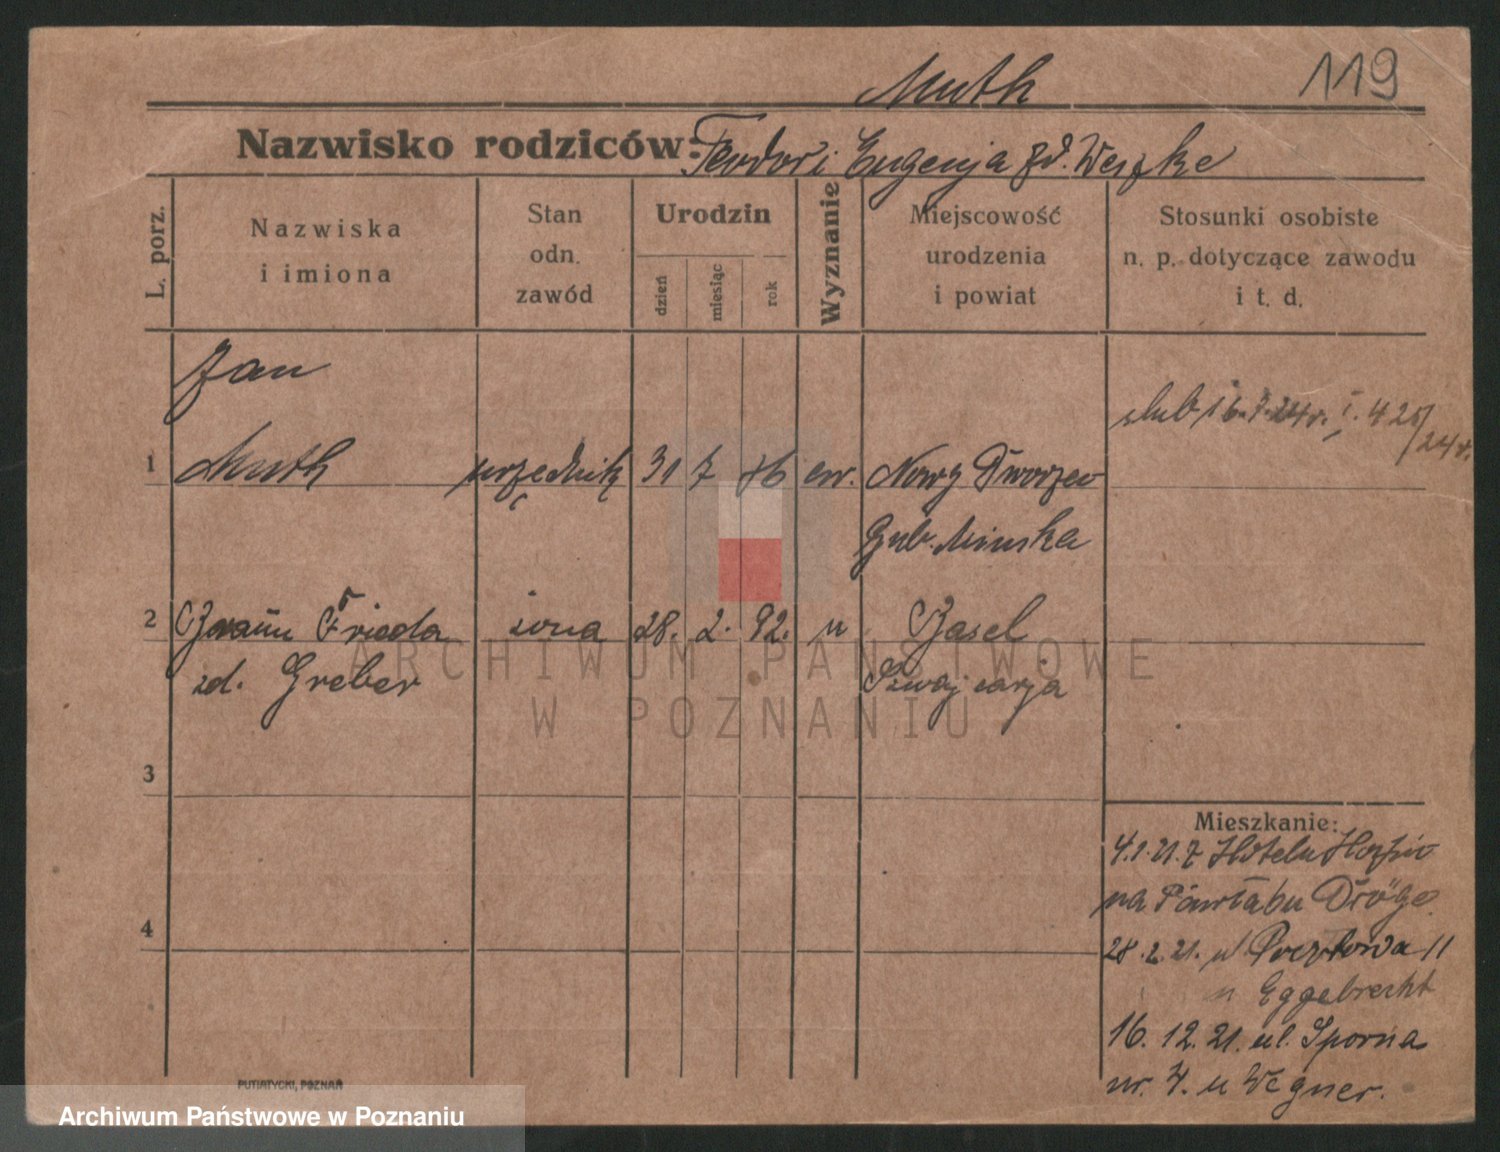 Muth 119
Nazwisko rodziców: Teodor i Eugenja zd. Weszke
L. porz.
Nazwiska
i imiona
Stan
odn.
zawód
Urodzin
dzień
miesiąc
rok
Wyznanie
Miejscowość
urodzenia
i powiat
Stosunki osobiste
n. p. dotyczące zawodu
i t. d.
Jan
ślub 16.7.24 r. I. 425/
24 r.
1 Muth urzędnik 31 7 86 ew. Nowy Dworzec
Gub. Mińska
2 Frieda żona 28. 2. 92. " Basel
zd. Greber Szwajcarja
ARCHIWUM PAŃSTWOWE
W POZNANIU
3
Mieszkanie:
4.1.21. z Hotelu
na Dröge.
4
28.2.21. ul Pocztowa 11
u Eggebrecht
16.12.21. ul. Sporna
nr. 4. u Wegner.
PUTIATYCKI, POZNAŃ
Archiwum Państwowe w Poznaniu